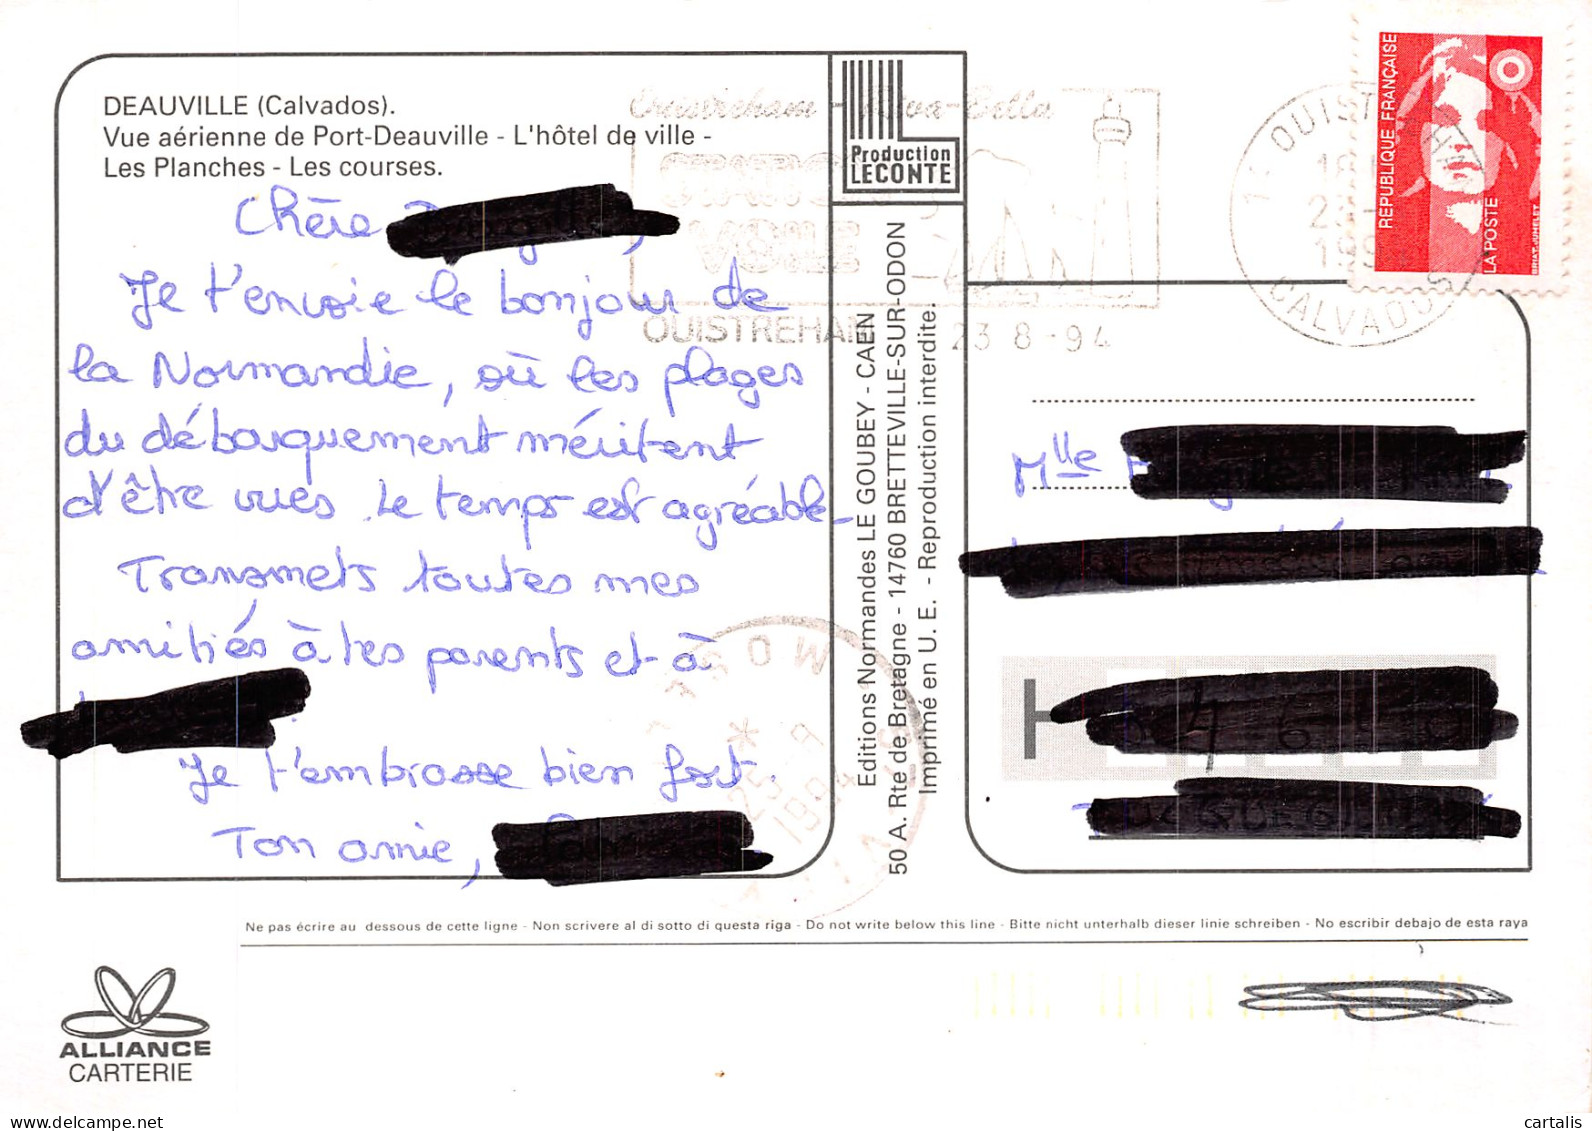 DEAUVILLE (Calvados).
Vue aérienne de Port-Deauville - L'hôtel de ville -
Les Planches - Les courses.
Chère
Je t'envoie le bonjour de
la Normandie, où les plages
du débarquement méritent
d'être vues. Le temps est agréable.
Transmets toutes mes
amitiés à tes parents et à
Je t'embrasse bien fort.
Ton amie,
Production
LECONTE
Editions Normandes LE GOUBEY - CAEN
50 A. Rte de Bretagne - 14760 BRETTEVILLE-SUR-ODON
Imprimé en U. E. - Reproduction interdite.
Ouistreham Riva-Bella
STATION
VOILE
OUISTREHAM
23 8 - 94
OUISTREHAM
CALVADOS
REPUBLIQUE FRANÇAISE
LA POSTE
BRIAT.JUMELET
Mlle
25 - 8
1994
Ne pas écrire au dessous de cette ligne - Non scrivere al di sotto di questa riga - Do not write below this line - Bitte nicht unterhalb dieser linie schreiben - No escribir debajo de esta raya
ALLIANCE
CARTERIE
www.delcampe.net
cartalis